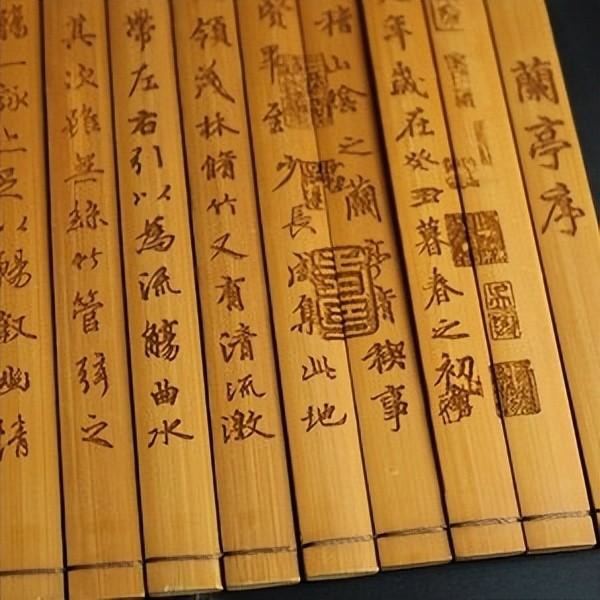 蘭亭序
年歲在癸丑暮春之初
稽山陰之蘭亭脩禊事
賢畢至少長咸集此地
領茂林脩竹又有清流激
帶左右引以為流觴曲水
其次雖無絲竹管弦之
觴一詠亦足以暢敘幽情